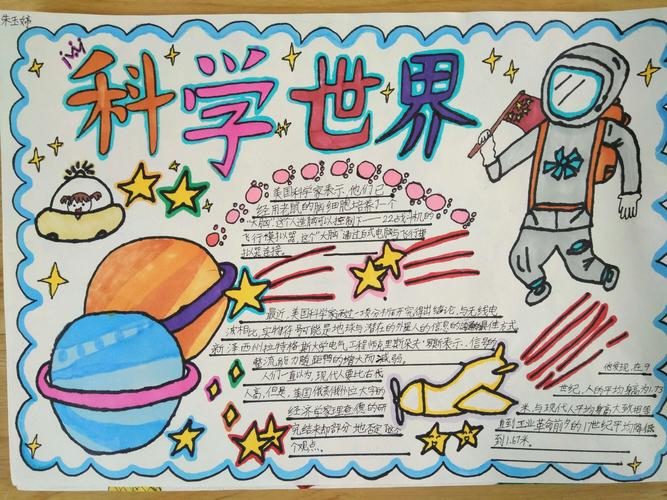 朱玉婷
科学世界
美国科学家表示,他们已
经用老鼠的脑细胞培养了一个
"大脑",这个人造脑可以控制F——22战斗机的
飞行模拟器,这个"大脑"通过台式电脑与飞行模
拟器连接。
最近,美国科学家通过一项分析研究得出结论,与无线电
波相比,实物符号可能是地球与潜在的外星人的信息的最佳方式
新泽西州拉特格斯大学电气工程师克里斯托夫·罗斯表示,信号的
整流能力随距离的增大而减弱。
人们一直以为,现代人要比古代
人高,但是,美国俄亥俄州立大学的
经济学家理查德的研
究结果却部分地否定这个
个观点。
他发现,在9
世纪,人的平均身高为1.73
米,与现代人平均身高大致相等
直到工业革命前夕的17世纪平均降低
到1.67米。